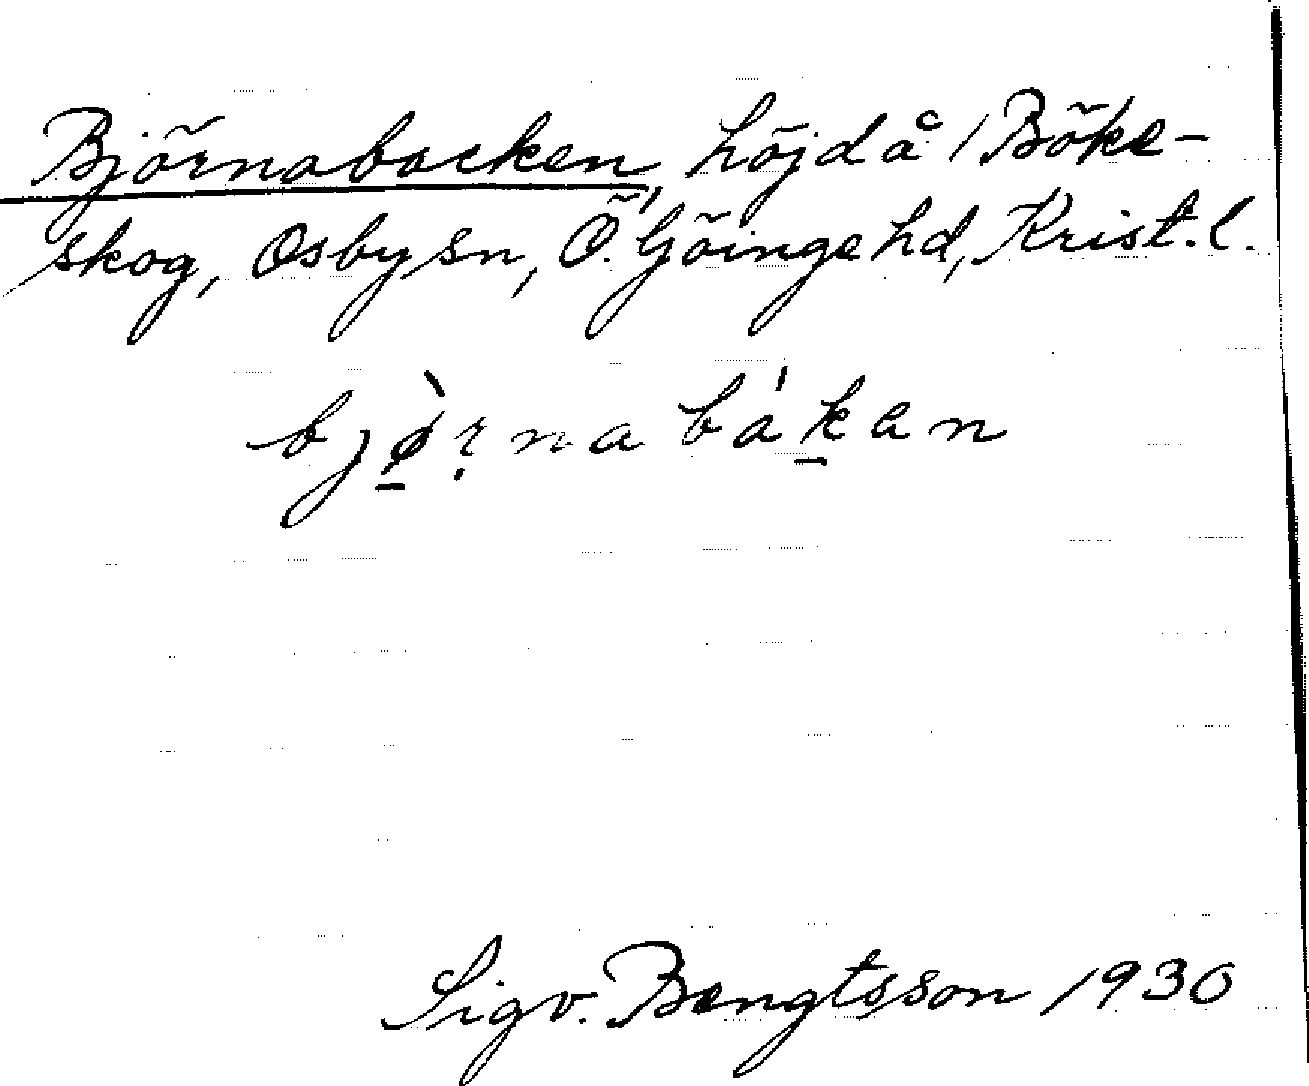 Björnabacken, höjd å 1 Böke-
skog, Osby sn, Ö. Göinge hd, Krist. l.
bjø̀r̥nabákan
Sigv. Bengtsson 1930